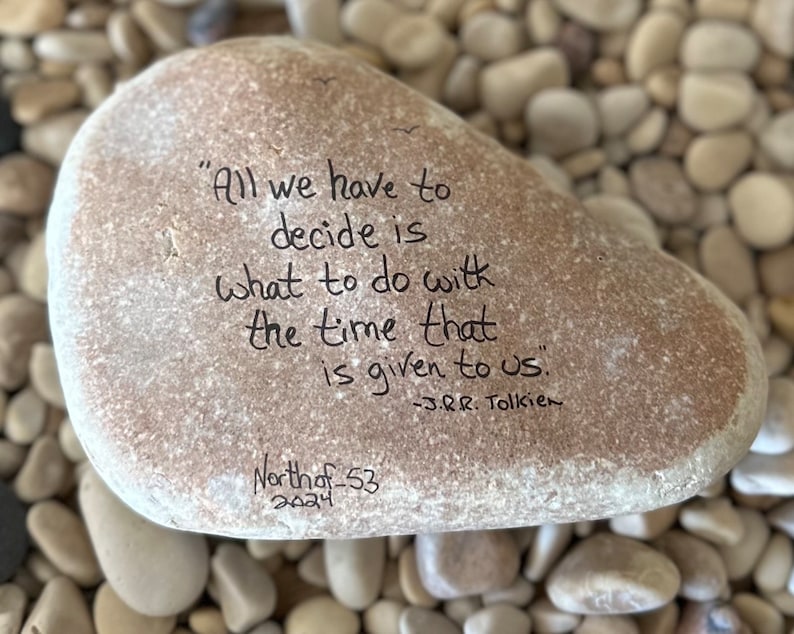 "All we have to
decide is
what to do with
the time that
is given to us."
-J.R.R. Tolkien
Northof_53
2024